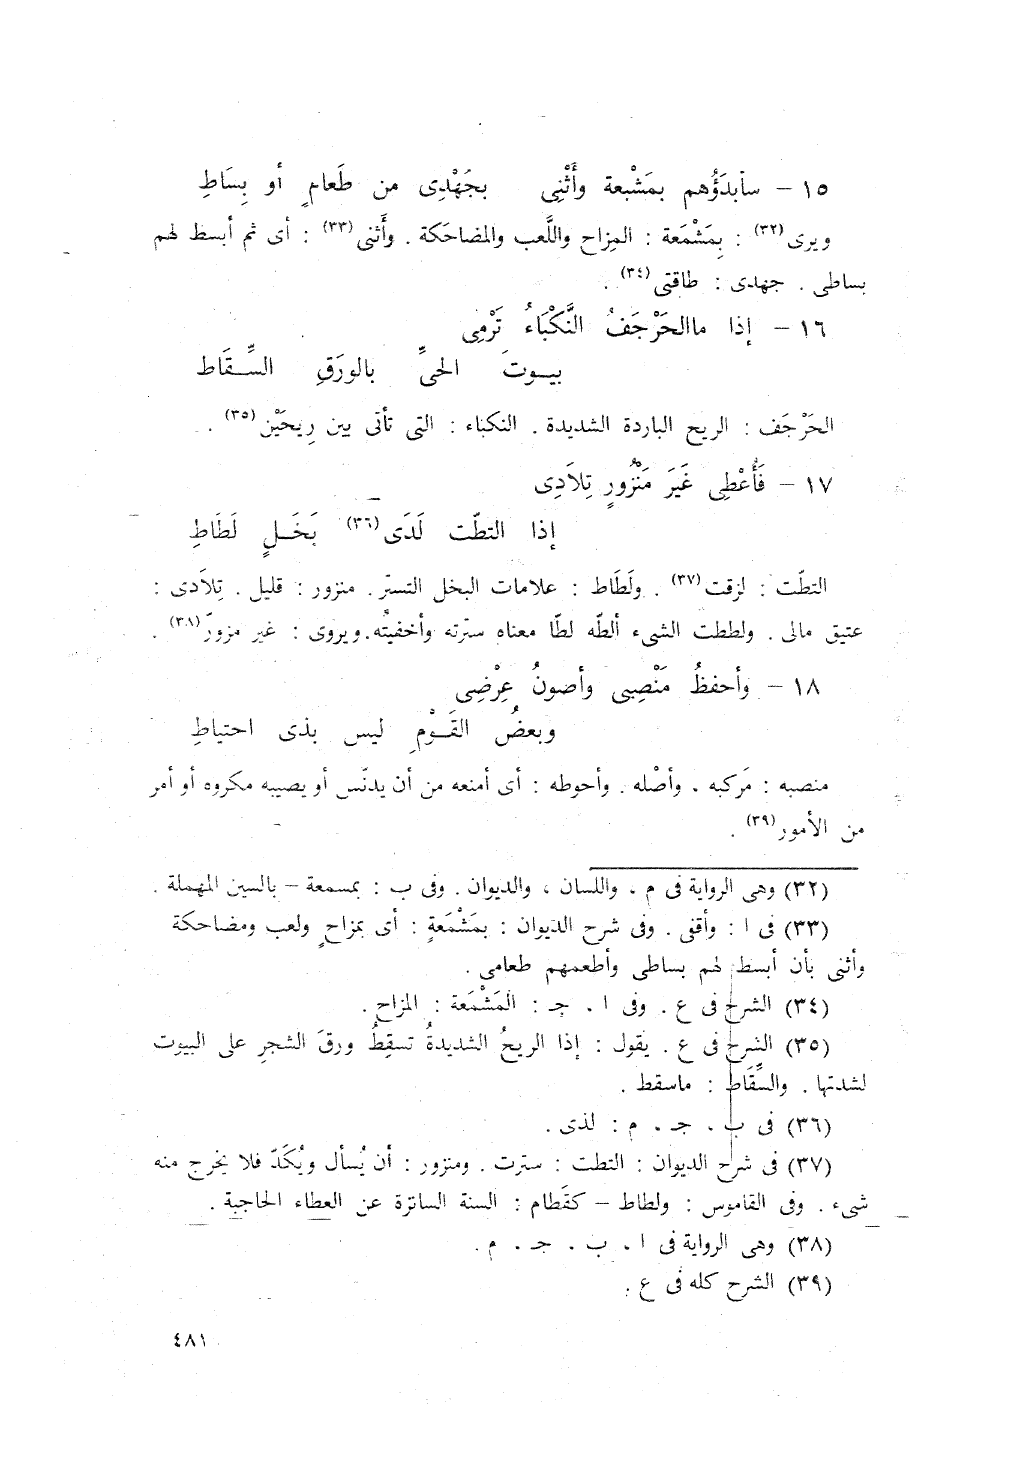 ١٥ – سأبدَؤُهم بمَشْبعة وأَثْنِى بجَهْدِى من طَعامٍ أو بِسَاطِ
ويرى(٣٢) : بِمَشْمَعة : المِزاح واللَّعب والمضاحَكة . وأَثنى(٣٣) : أى ثم أبسط لهم
بساطى . جهدى : طاقتى(٣٤) .
١٦ – إذا ماالحَرْجَفُ النَّكْبَاءُ تَرْمِى
بيـوتَ الحىِّ بالورَقِ السِّـقَاط
الحَرْجَف : الريح الباردة الشديدة . النكباء : التى تأتى بين رِيحَيْن(٣٥) .
١٧ – فَأُعْطِى غَيَرَ مَنْزُورٍ تِلاَدِى
إذا التطّت لَدَى(٣٦) بَخَـلٍ لَطَاطِ
التطّت : لزقت(٣٧) . ولَطَاط : علامات البخل التستّر . منزور : قليل . تِلاَدى :
عتيق مالى . ولططت الشىء ألطّه لطّا معناه سترته وأخفيتُه. ويروى : غير مزورّ(٣٨) .
١٨ – وأحفظُ مَنْصِبى وأصونُ عِرْضِى
وبعضُ القَـوْمِ ليس بذى احتياطِ
منصبه : مَركبه . وأصْله . وأحوطه : أى أمنعه من أن يدنّس أو يصيبه مكروه أو أمر
من الأمور(٣٩) .
(٣٢) وهى الرواية فى م . واللسان ، والديوان . وفى ب : بمسمعة – بالسين المهملة .
(٣٣) فى ا : وأقنى . وفى شرح الديوان : بمَشْمَعةٍ : أى بمزاحٍ ولعب ومضاحكة
وأثنى بأن أبسط لهم بساطى وأطعمهم طعامى .
(٣٤) الشرح فى ع . وفى ا . جـ : المَشْمَعة : المزاح .
(٣٥) الشرح فى ع . يقول : إذا الريحُ الشديدةُ تسقِطُ ورقَ الشجرِ على البيوت
لشدتها . والسِّقَاط : ماسقط .
(٣٦) فى ب . جـ . م : لذى .
(٣٧) فى شرح الديوان : التطت : سترت . ومنزور : أن يُسأل ويُكَدّ فلا يخرج منه
شىء . وفى القاموس : ولطاط – كقَطام : السنة الساترة عن العطاء الحاجبة .
(٣٨) وهى الرواية فى ا . ب . جـ . م .
(٣٩) الشرح كله فى ع .
٤٨١